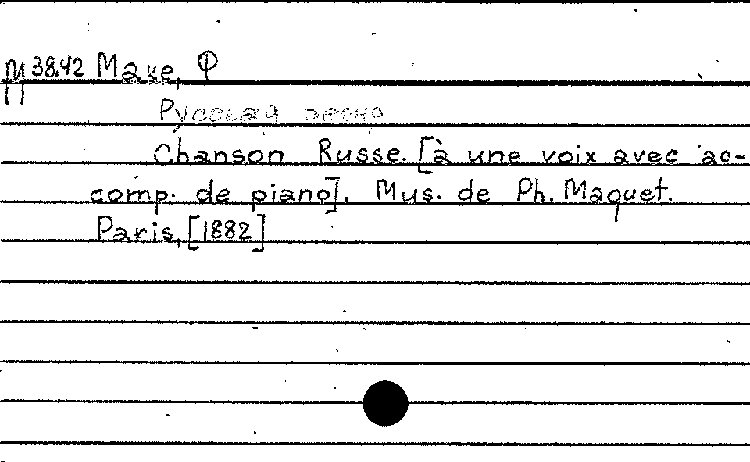 М 38.42 Маке, Ф
П
Русская песня
Chanson Russe. [à une voix avec ac-
comp. de piano]. Mus. de Ph. Maquet.
Paris, [1882]